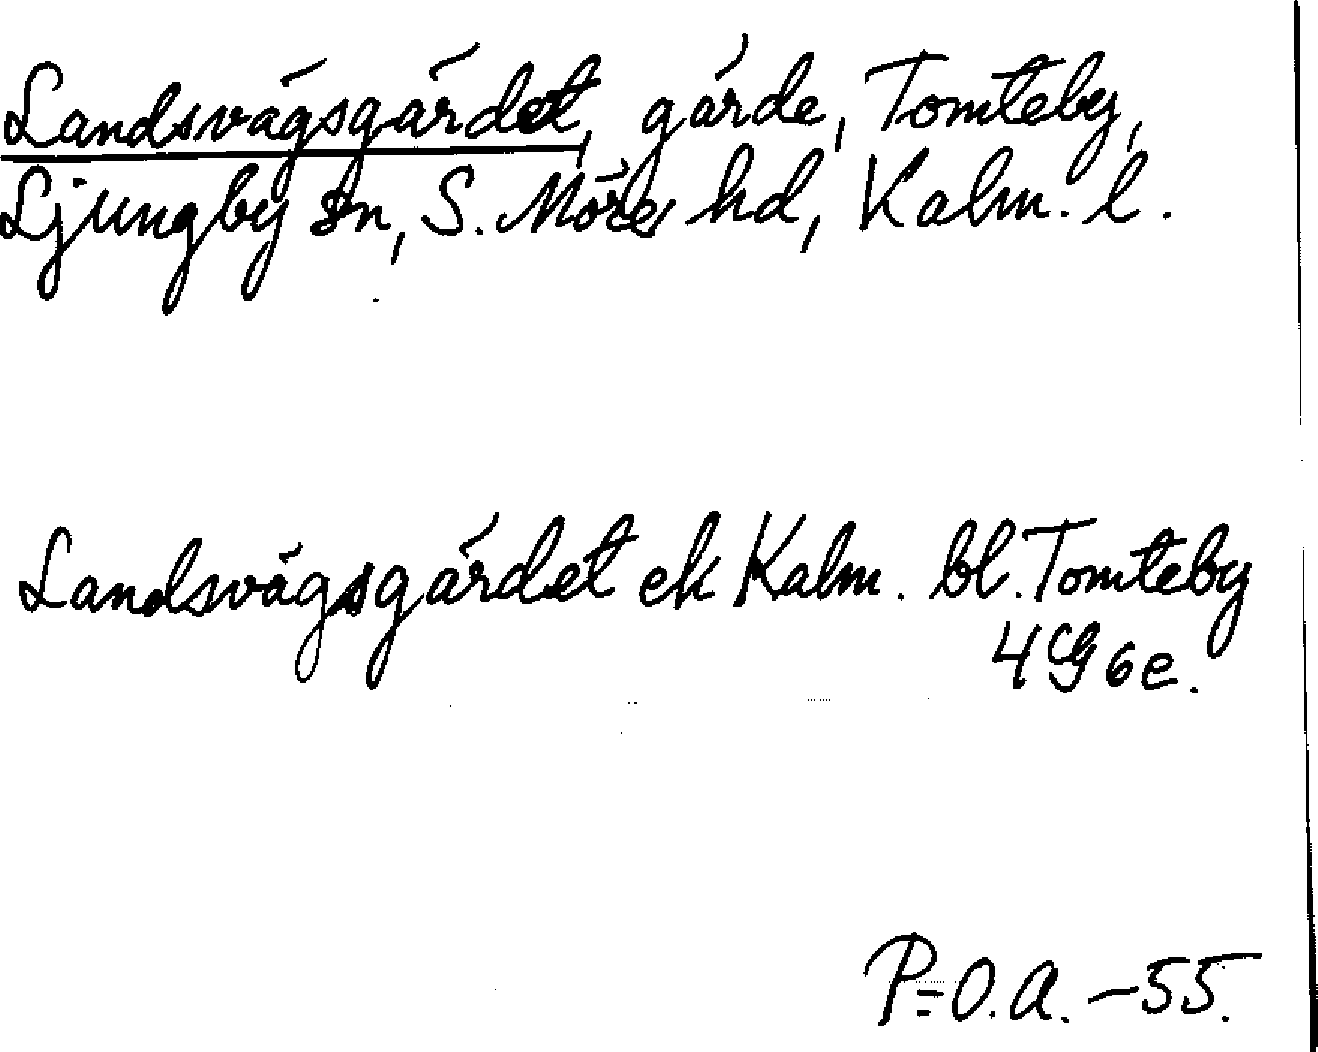 Landsvägsgärdet, gärde, Tomteby,
Ljungby sn, S. Möre hd, Kalm. l.
Landsvägsgärdet ek Kalm. bl. Tomteby
4G6e.
P=O.A. -55.